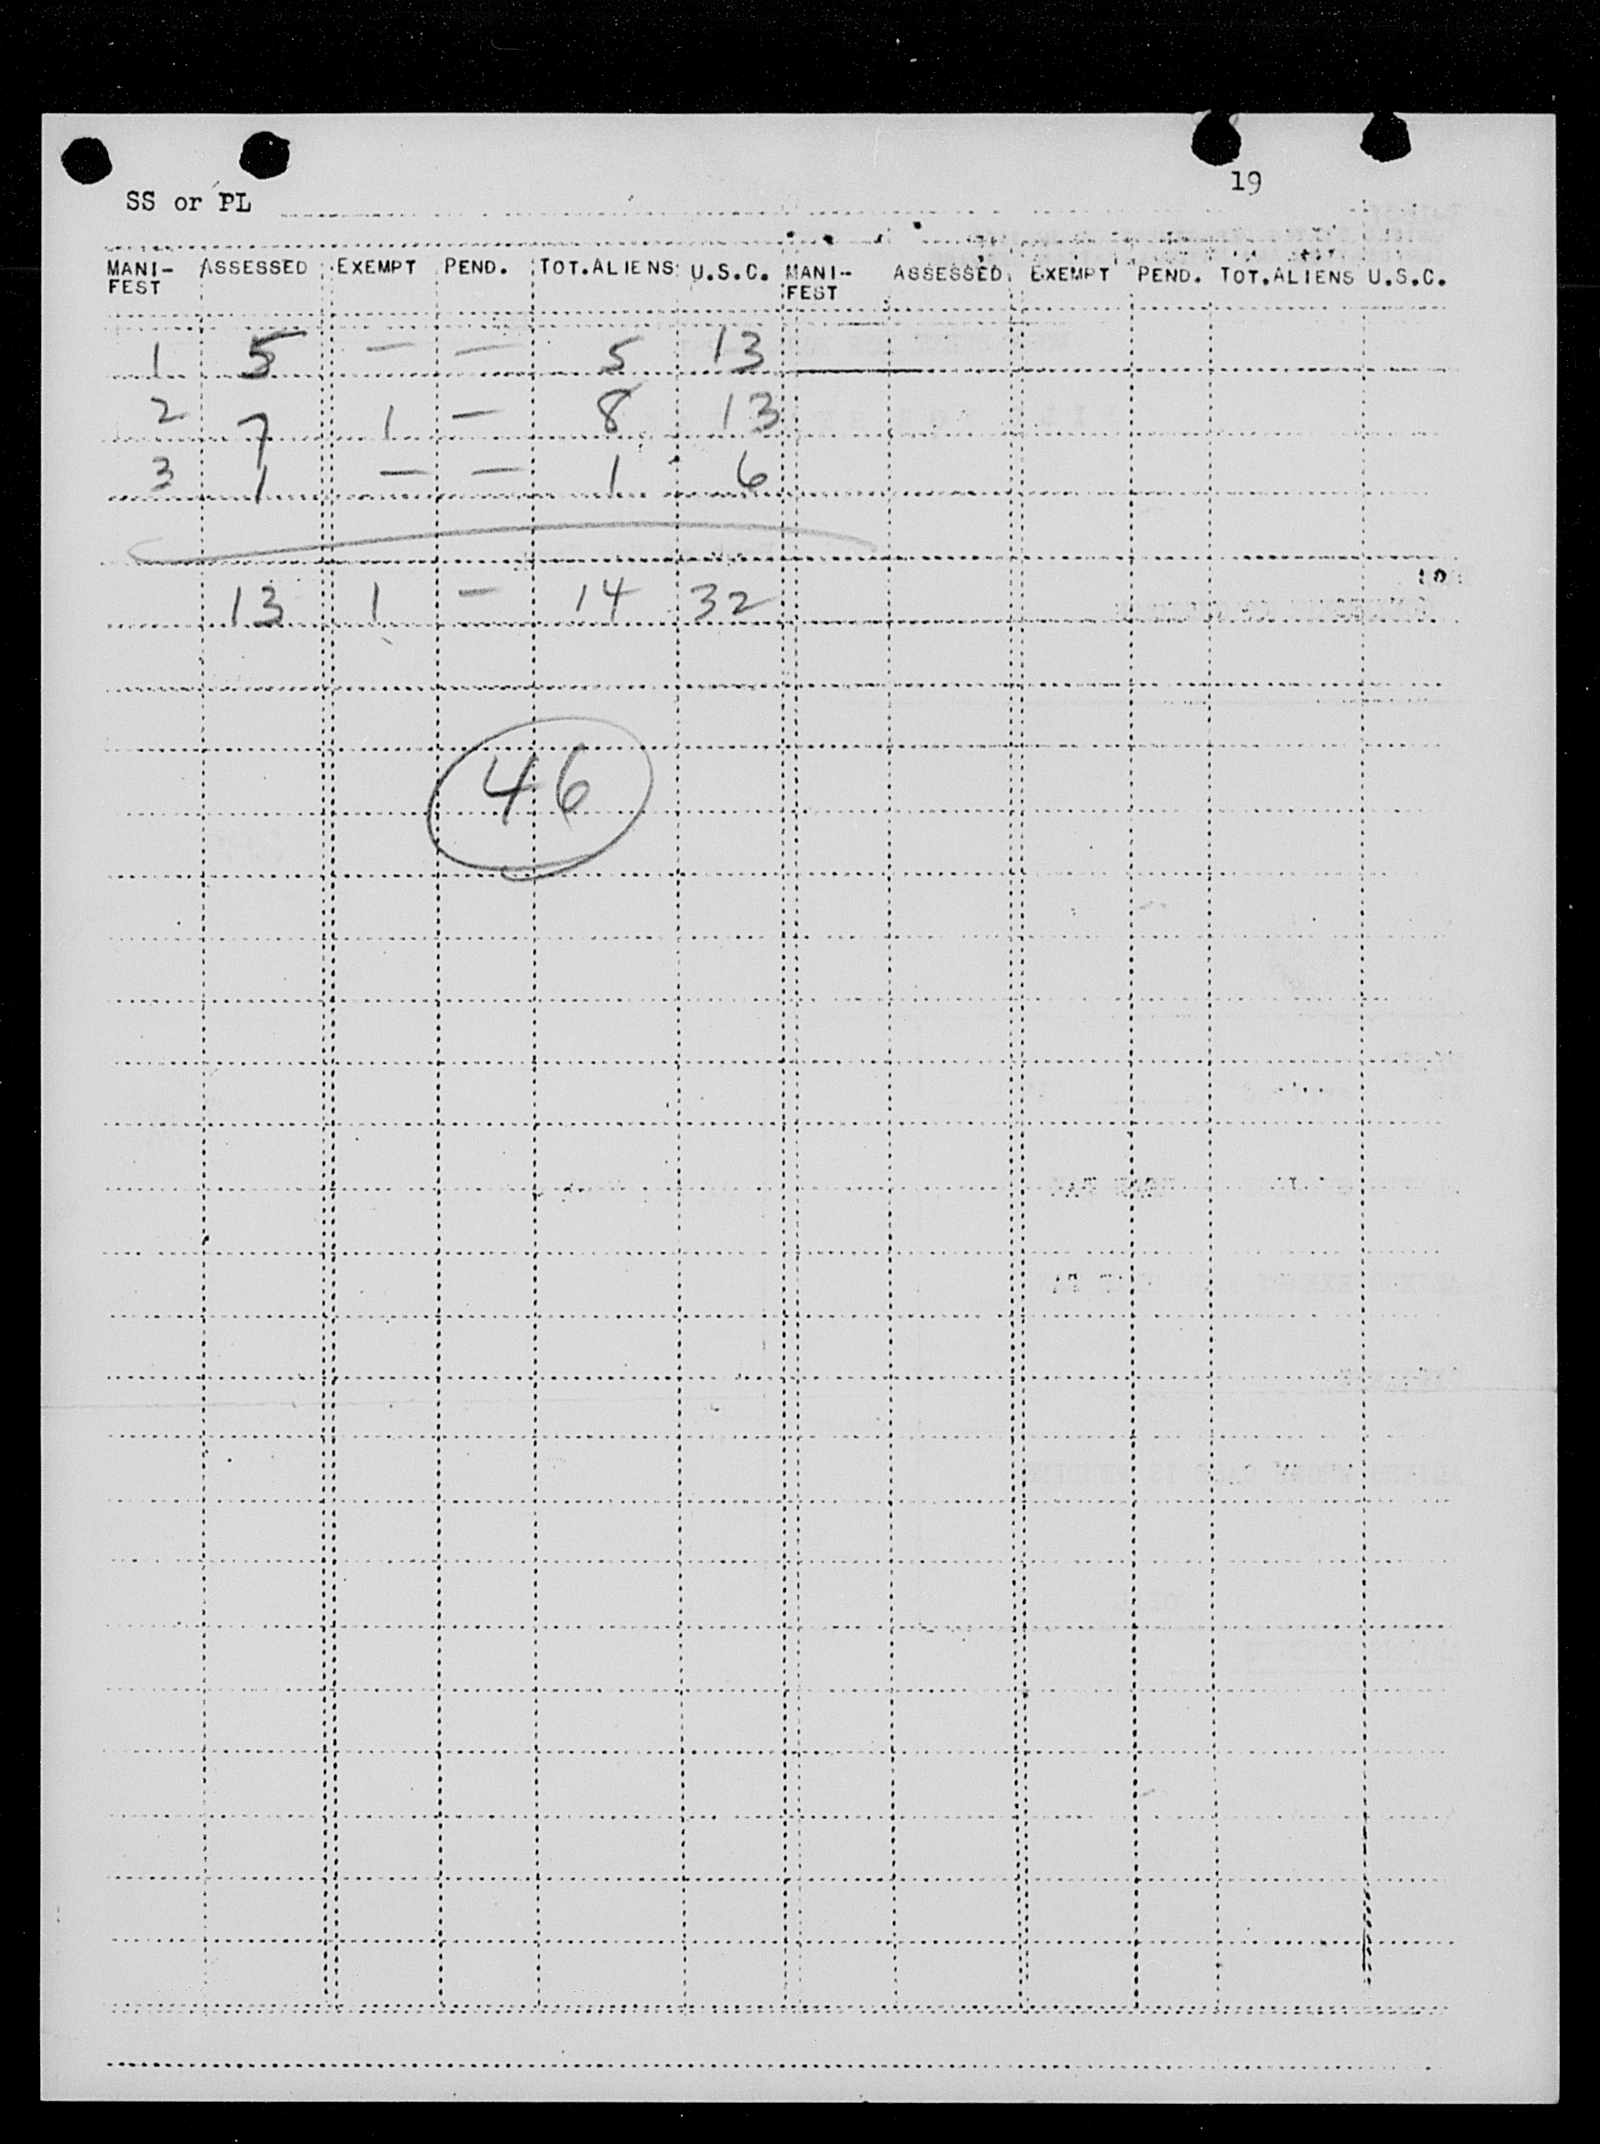 19
SS or PL
MANI- ASSESSED EXEMPT PEND. TOT.ALIENS U.S.C. MANI- ASSESSED EXEMPT PEND. TOT.ALIENS U.S.C.
FEST FEST
1 5 — — 5 13
2 7 1 — 8 13
3 1 — — 1 6
13 1 — 14 32
46